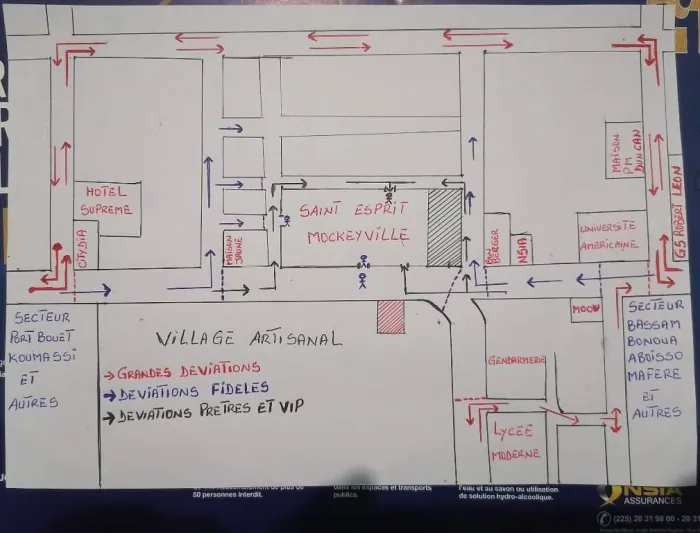 HOTEL
SUPREME
CITYDIA
MAISON
JAUNE
SAINT ESPRIT
MOCKEYVILLE
BON
BERGER
NSIA
MAISON
PM
DUNCAN
UNIVERSITE
AMERICAINE
GS ROBERT LEON
MOOV
SECTEUR
PORT BOUET
KOUMASSI
ET
AUTRES
VILLAGE ARTISANAL
→ GRANDES DEVIATIONS
→ DEVIATIONS FIDELES
→ DEVIATIONS PRETRES ET VIP
GENDARMERIE
LYCEE
MODERNE
SECTEUR
BASSAM
BONOUA
ABOISSO
MAFERE
ET
AUTRES
50 personnes interdit.
dans les espaces et transports
publics.
l'eau et au savon ou utilisation
de solution hydro-alcoolique.
NSIA
ASSURANCES